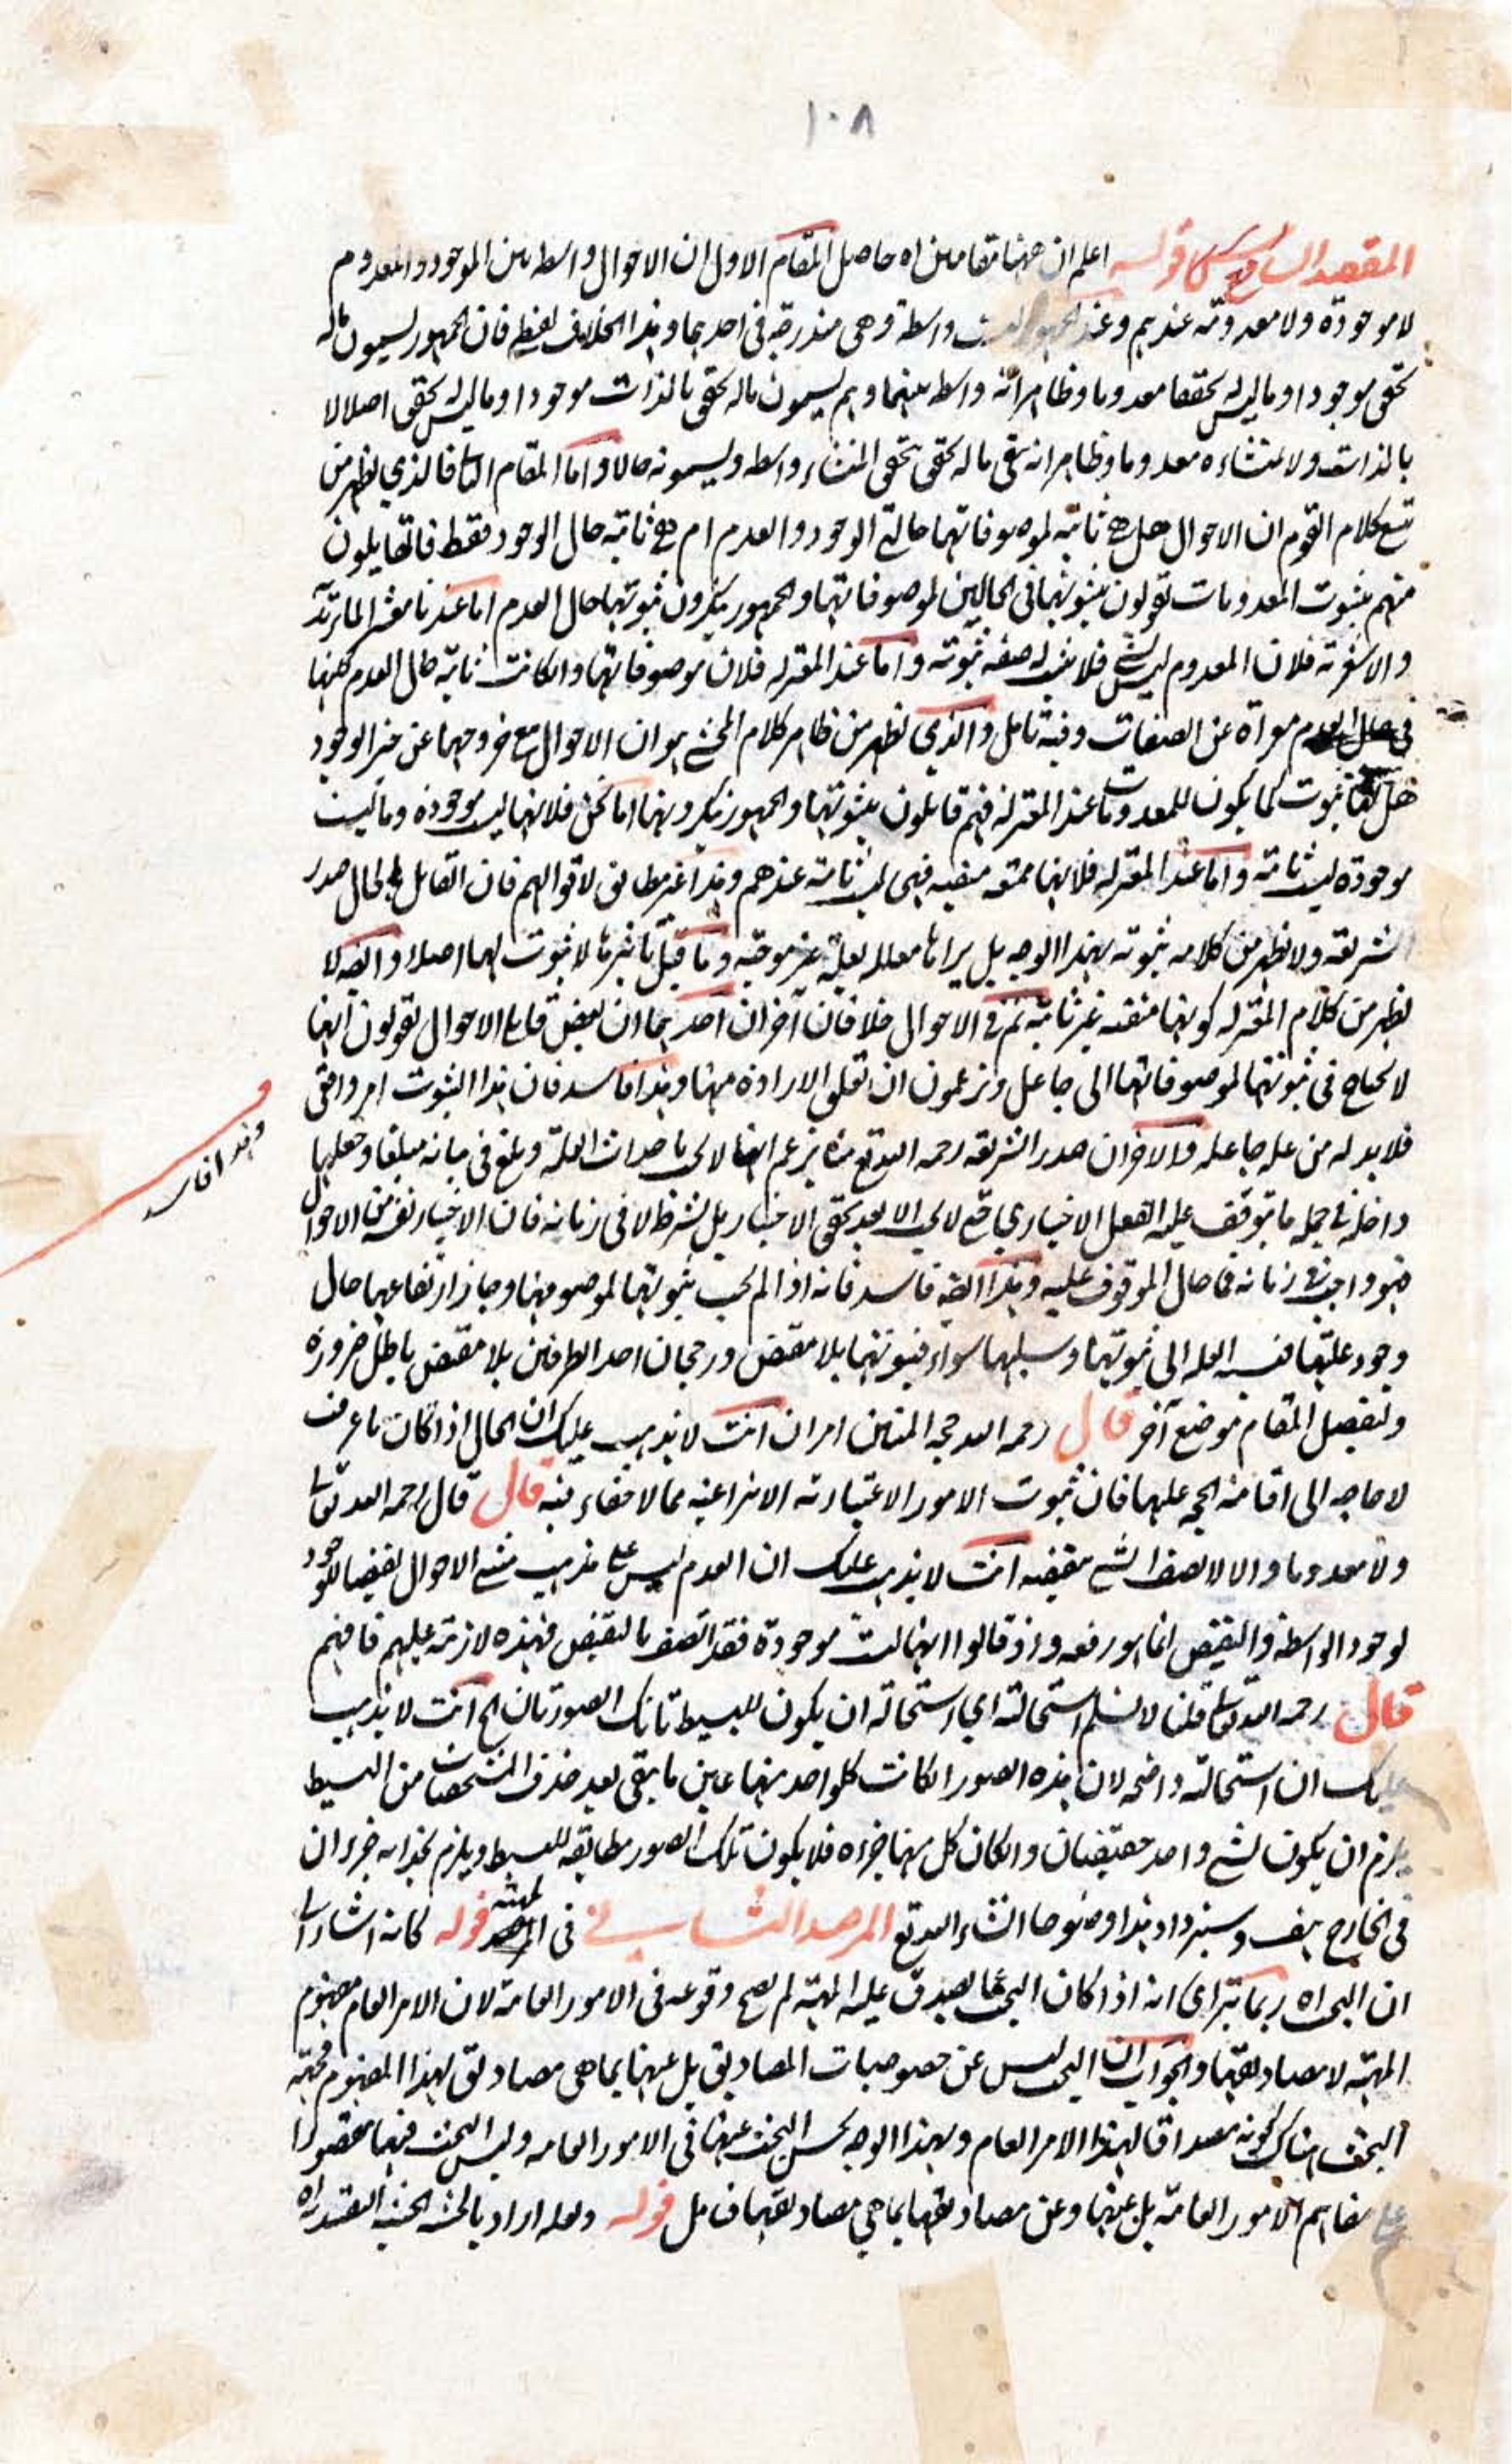 ١٠٨
المقصد السابع قوله اعلم ان ههنا مقامين اه حاصل المقام الاول ان الاحوال واسطه بين الموجود والمعدوم
لا موجودة ولا معدومة عندهم وعند الجمهور ليست واسطة وهى مندرجة فى احدهما وهذا الخلاف لفظى فان الجمهور يسمون ماله
تحقق موجودا وما ليس له تحقق معدوما وظاهر انه واسطه بينهما وهم يسمون ماله تحقق بالذات موجودا وما ليس له تحقق اصلا لا
بالذات ولا بمنشاءه معدوما وظاهر انه بقى ما له تحقق بتحقق المنشاء واسطه ويسمونه حالا واما المقام الثانى فالذي يظهر من
تتبع كلام القوم ان الاحوال هل هى ثابتة لموصوفاتها حالتى الوجود والعدم ام هى ثابته حال الوجود فقط فالقايلون
منهم بثبوت المعدومات يقولون بثبوتها فى الحالين لموصوفاتها والجمهور ينكرون ثبوتها حال العدم اما عندنا معشر الماتريدية
والاشعرية فلان المعدوم ليس بشئ فلا يثبت له صفه ثبوته واما عند المعتزله فلان موصوفاتها وان كانت ثابته حال العدم لكنها
فى حال العدم معراة عن الصفات وفيه تامل والذي يظهر من ظاهر كلام المحشى هو ان الاحوال مع خروجها عن حيز الوجود
هل لها ثبوت كما يكون للمعدومات عند المعتزلة فهم قايلون بثبوتها والجمهور ينكرونها اما نحن فلانها ليست موجودة وما ليست
موجودة ليست ثابتة واما عند المعتزله فلانها ممتنعه منفيه فهى ليست ثابتة عندهم وهذا غير مطابق لاقوالهم فان القايل بالحال صدر
الشريعة ولا يظهر من كلامه ثبوته بهذا الوجه بل يراها معللا بعلة غير موجبه وما قيل لا ثبوت لها اصلا وايضا لا
يظهر من كلام المعتزله كونها منفيه غير ثابتة ثم فى الاحوال خلافان آخران احدهما ان بعض قايلى الاحوال يقولون انها
لا يحتاج فى ثبوتها لموصوفاتها الى جاعل ويزعمون ان تعلق الارادة منها وهذا فاسد فان هذا الثبوت امر واقعى
وهذا فاسد
فلا بد له من علة جاعله والآخر ان صدر الشريعه رحمه الله تع يزعم انها لا يجب باحداث العلة وبلغ فى بيانه مبلغا وجعلها
داخلة فى جمله ما يتوقف عليه الفعل الاختياري حتى لا يجب الا بعد تحقق الاختيار بل بشرطه لا فى زمانه فان الاختيار نفسه من الاحوال
فهو واجب فى زمانه فما حال الموقوف عليه وهذا ايضا فاسد فانه اذا لم يجب ثبوتها لموصوفها وجاز ارتفاعها حال
وجود علتها فنسبه العله الى ثبوتها وسلبها سواء فثبوتها بلا مقتض ورجحان احد الطرفين بلا مقتض باطل ضرورة
وتفصيل المقام موضع آخر قال رحمه الله حجه المثبتين امران انت لا يذهب عليك ان الحال اذا كان ما عرفت
لا حاجه الى اقامة الحجه عليها فان ثبوت الامور الاعتبارية الانتزاعية مما لا خفاء فيه قال قال رحمه الله تعالى
ولا معدوما والا لاتصف الشئ بنقيضه انت لا يذهب عليك ان العدم ليس على مذهب مثبتى الاحوال نقيضا للوجود
لوجود الواسطة والنقيض انما هو رفعه واذ قالوا انها ليست موجودة فقد اتصف بالنقيض فهذه لازمة عليهم فافهم
قال رحمه الله تعالى قلنا لا نسلم استحالته اي استحالة ان يكون للبسيط تانك الصورتان الخ انت لا يذهب
عليك ان استحالته واضحه لان هذه الصور ان كانت كل واحد منها عين ما بقى بعد حذف المشخصات من البسيط
يلزم ان يكون لشئ واحد حقيقتان وان كان كل منها جزءه فلا يكون تلك الصور مطابقه للبسيط ويلزم جزءان
فى الخارج هف وسنزداد هذا وضوحا انشاء الله تع المرصد الثانى فى الماهية قوله كانه اشار الى
ان البحث اه ربما يتراى انه اذا كان البحث عما يصدق عليه المهية لم يصح وقوعه فى الامور العامة لان الامر العام مفهوم
المهية لا مصاديقها والجواب ان البحث ليس عن خصوصيات المصاديق بل عنها بما هى مصاديق لهذا المفهوم فجهة
البحث هناك كونه مصداقا لهذا الامر العام وبهذا الوجه يحسن البحث عنها فى الامور العامه وليس البحث فيها مقصورا
على مفاهيم الامور العامة بل عنها وعن مصاديقها بما هى مصاديقها فتامل قوله ولعله اراد بالحيثية الحيثية التقييديه اه